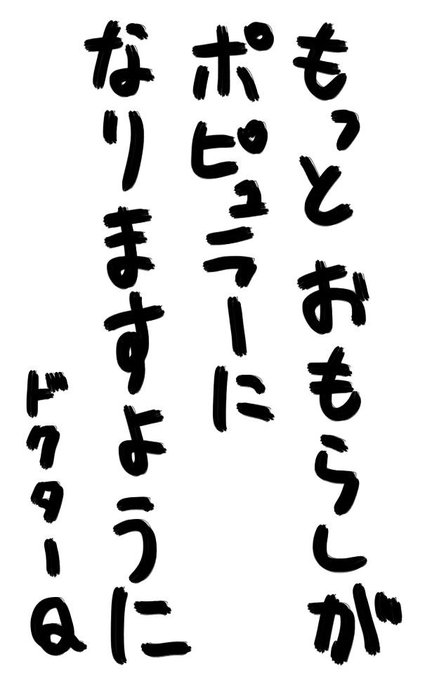 もっと おもらしが
ポピュラーに
なりますように
ドクターQ